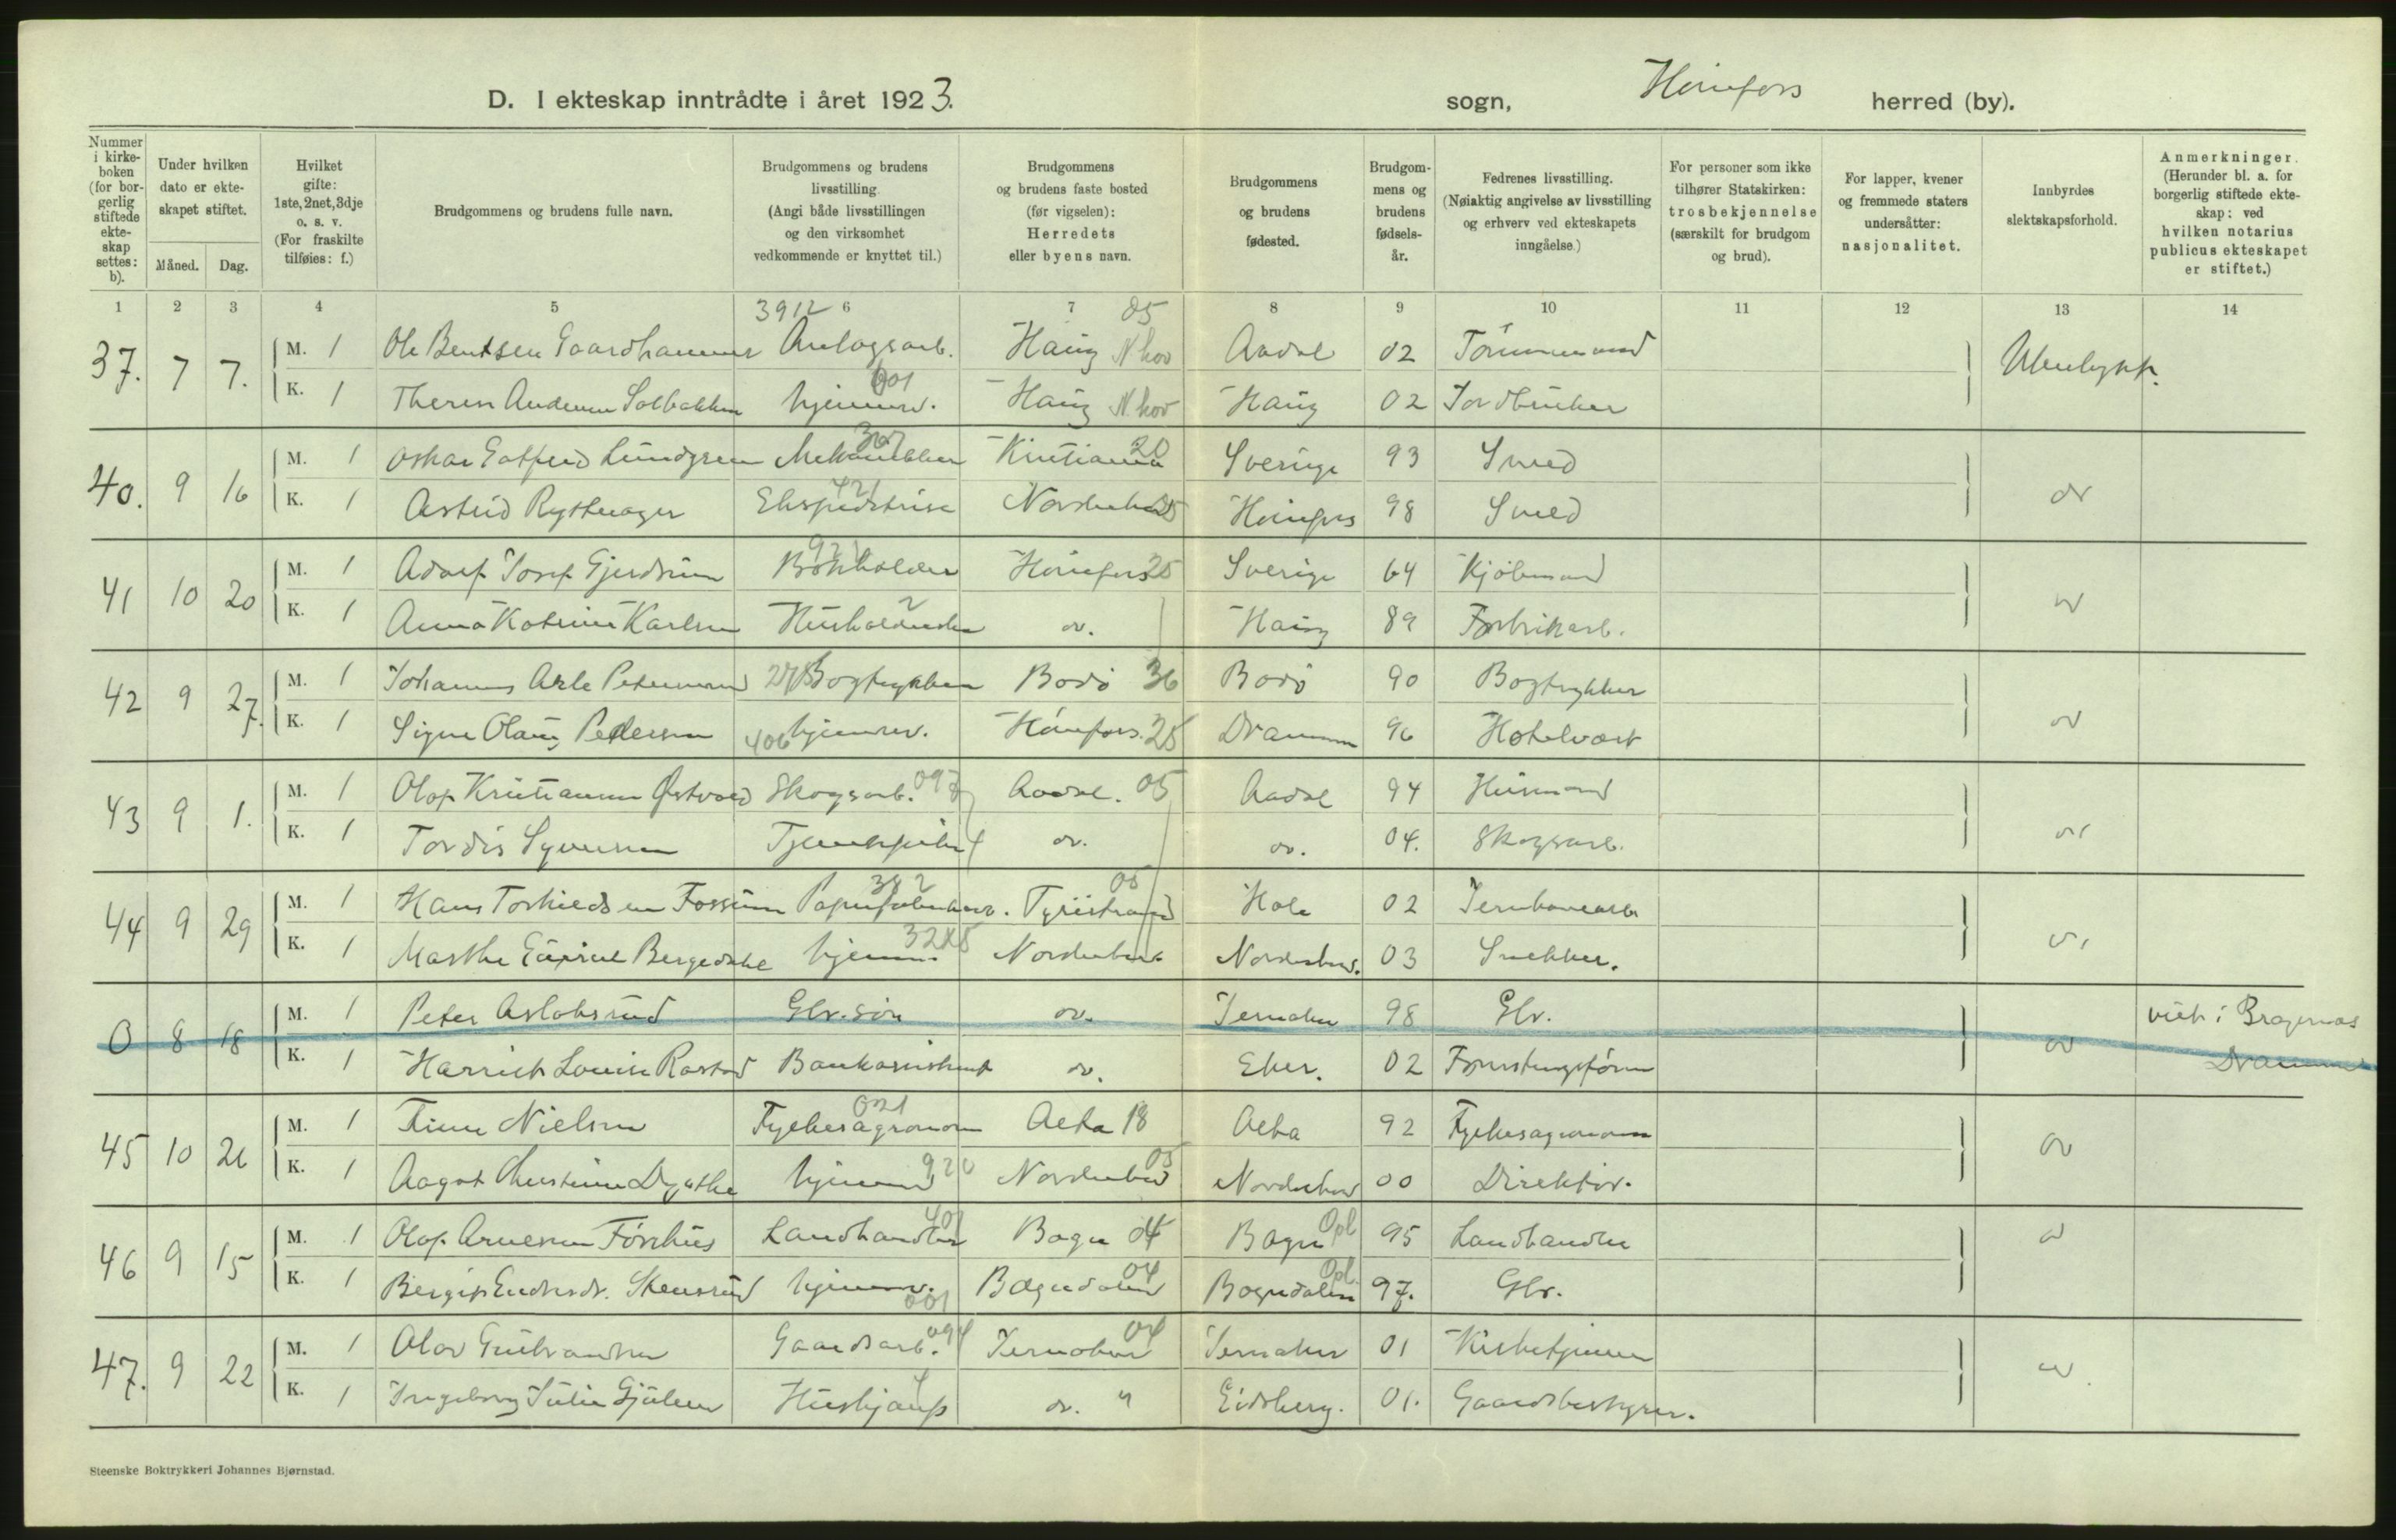 D. I ekteskap inntrådte i året 1923. sogn, Hönefors herred (by).
Nummer i kirkeboken (for borgerlig stiftede ekteskap settes: b).
Under hvilken dato er ekteskapet stiftet.
Måned. Dag.
Hvilket gifte: 1ste, 2net, 3dje o. s. v. (For fraskilte tilføies: f.)
Brudgommens og brudens fulle navn.
Brudgommens og brudens livsstilling. (Angi både livsstillingen og den virksomhet vedkommende er knyttet til.)
Brudgommens og brudens faste bosted (før vigselen): Herredets eller byens navn.
Brudgommens og brudens fødested.
Brudgommens og brudens fødselsår.
Fedrenes livsstilling. (Nøiaktig angivelse av livsstilling og erhverv ved ekteskapets inngåelse.)
For personer som ikke tilhører Statskirken: trosbekjennelse (særskilt for brudgom og brud).
For lapper, kvener og fremmede staters undersåtter: nasjonalitet.
Innbyrdes slektskapsforhold.
Anmerkninger. (Herunder bl. a. for borgerlig stiftede ekteskap: ved hvilken notarius publicus ekteskapet er stiftet.)
1 2 3 4 5 3912 6 7 05 8 9 10 11 12 13 14
37. 7 7. M. 1 Ole Bentsen Gaardhammer Anlagsarb. Haug N hov Aadal 02 Tömmermand Ubeslegt.
K. 1 Therese Andersen Solbakken hjemmev. 001 Haug N hov Haug 02 Jordbruker
40. 9 16 M. 1 Oskar Gotfred Lundgren Mekaniker Kristiania 20 Sverige 93 Smed do
K. 1 Astrid Rytterager Ekspeditrise 421 Norderhov 25 Hönefors 98 Smed
41 10 20 M. 1 Adolf Josef Gjerdrum Bokholder Hönefors 25 Sverige 64 Kjöbmand do
K. 1 Anna Katrine Karlsen Husholderske 2 do. Haug 89 Fabrikarb.
42 9 27. M. 1 Johannes Arle Bogtrykker Bodö 36 Bodö 90 Bogtrykker do
K. 1 Signe Olaug Pedersen 406 hjemmev. Hönefors. 25 Drammen 96 Hotelvært
43 9 1. M. 1 Olaf Kristiansen Østvold Skogsarb. 097 Aadal. 05 Aadal 94 Husmand do
K. 1 Tordis Syversen Tjenestepike 4 do. do. 04. Skogsarb.
44 9 29 M. 1 Hans Torkildsen Fossum 382 Tyristrand 05 Hole 02 Jernbanearb do
K. 1 Marthe Bergedahl hjemm. Norderhov Norderhov. 03 Snekker.
0 8 18 M. 1 Peter Aslaksrud Gbr. sön do. Jevnaker 98 Gbr. do viet i Bragernæs
K. 1 Harriet Louise Rastad Bankassistent do. Eker. 02 Drammen
45 10 26 M. 1 Finn Nielsen Fylkesagronom 021 Alta 18 Alta 92 Fylkesagronom do
K. 1 Aagot Christine hjemme 920 Norderhov 05 Norderhov 00 Direktör.
46 9 15 M. 1 Olaf Arnesen Landhandler 401 Bagn 04 Bagn Opl 95 Landhandler do
K. 1 Bergit Endresdr. Stensrud hjemmev. 001 Bægndalen 04 Bægndalen Opl. 97. Gbr.
47. 9 22 M. 1 Olav Gulbrandsen Gaardsarb. 094 Jevnaker 04 Jevnaker 01 Kirketjener do
K. 1 Ingeborg Julie Gjulem Hushjælp 4 do. " Eidsberg. 01. Gaardsbestyrer.
Steenske Boktrykkeri Johannes Bjørnstad.